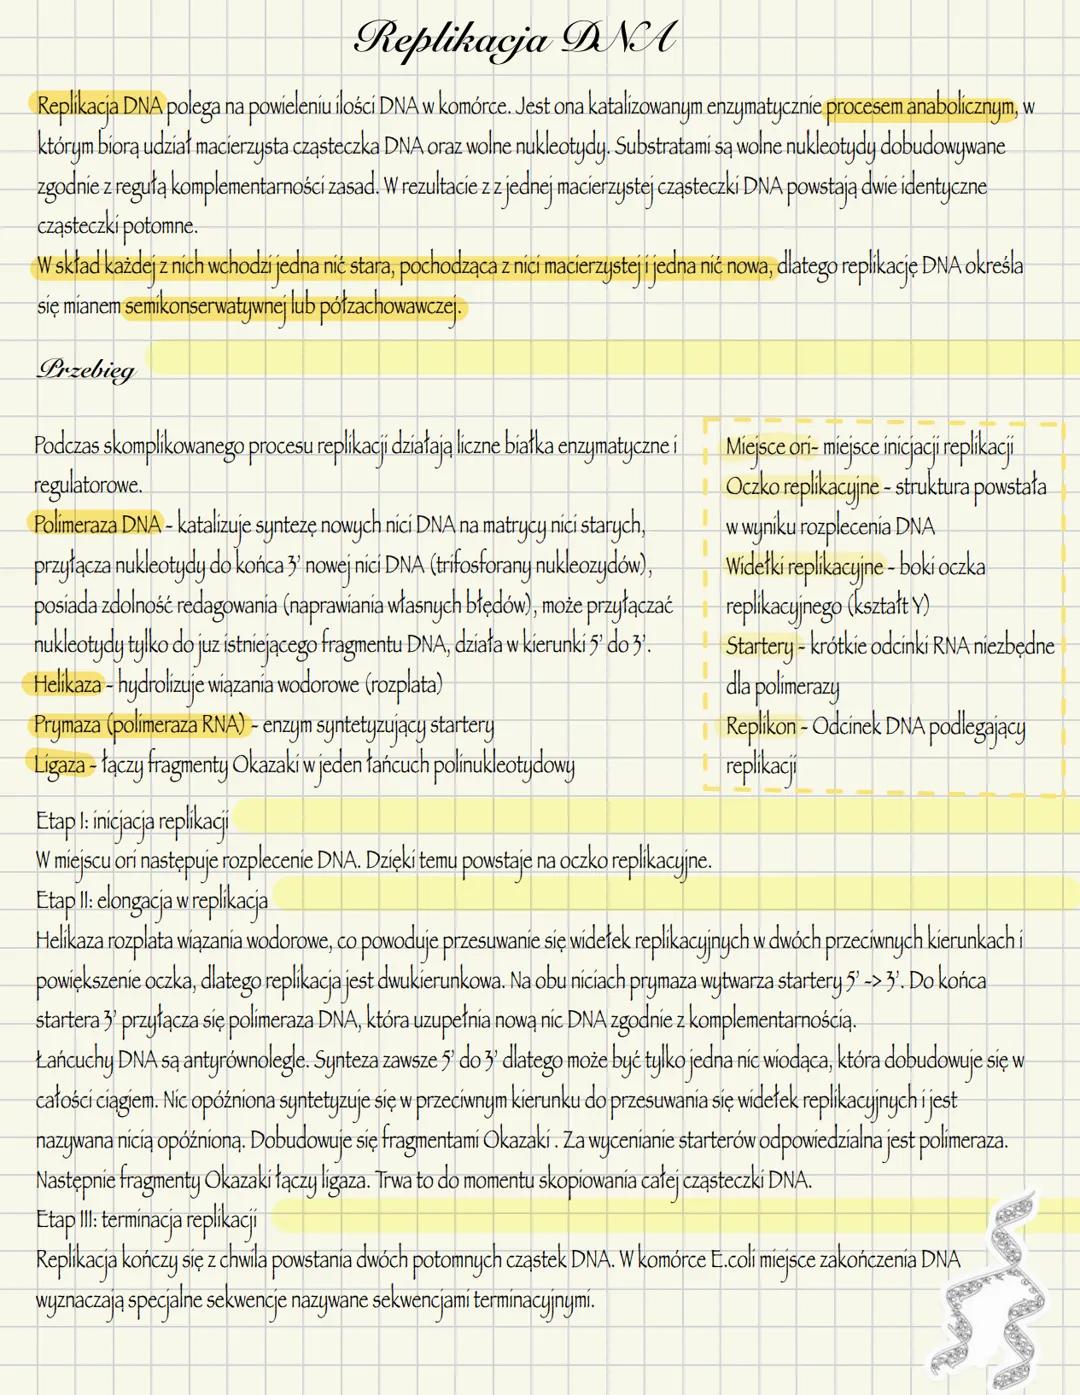 Replikacja DNA
Replikacja DNA polega na powieleniu ilości DNA w komórce. Jest ona katalizowanym enzymatycznie procesem anabolicznym, w
którym biorą udział macierzysta cząsteczka DNA oraz wolne nukleotydy. Substratami są wolne nukleotydy dobudowywane
zgodnie z regułą komplementarności zasad. W rezultacie z z jednej macierzystej cząsteczki DNA powstają dwie identyczne
cząsteczki potomne.
W skład każdej z nich wchodzi jedna nić stara, pochodząca z nici macierzystej i jedna nić nowa, dlatego replikację DNA określa
się mianem semikonserwatywnej lub półzachowawczej.
Przebieg
Podczas skomplikowanego procesu replikacji działają liczne białka enzymatyczne i
regulatorowe.
Polimeraza DNA - katalizuje syntezę nowych nici DNA na matrycy nici starych,
przyłącza nukleotydy do końca 3' nowej nici DNA (trifosforany nukleozydów),
posiada zdolność redagowania (naprawiania własnych błędów), może przyłączać
nukleotydy tylko do juz istniejącego fragmentu DNA, działa w kierunki 5' do 3'.
Helikaza - hydrolizuje wiązania wodorowe (rozplata)
Prymaza (polimeraza RNA) - enzym syntetyzujący startery
Ligaza - łączy fragmenty Okazaki w jeden łańcuch polinukleotydowy
Miejsce ori- miejsce inicjacji replikacji
Oczko replikacyjne - struktura powstała
w wyniku rozplecenia DNA
Widełki replikacyjne - boki oczka
replikacyjnego (kształt Y)
Startery - krótkie odcinki RNA niezbędne
dla polimerazy
Replikon - Odcinek DNA podlegający
replikacji
Etap I: inicjacja replikacji
W miejscu ori następuje rozplecenie DNA. Dzięki temu powstaje na oczko replikacyjne.
Etap II: elongacja w replikacja
Helikaza rozplata wiązania wodorowe, co powoduje przesuwanie się widełek replikacyjnych w dwóch przeciwnych kierunkach i
powiększenie oczka, dlatego replikacja jest dwukierunkowa. Na obu niciach prymaza wytwarza startery 5' -> 3'. Do końca
startera 3' przyłącza się polimeraza DNA, która uzupełnia nową nic DNA zgodnie z komplementarnością.
Łańcuchy DNA są antyrównolegle. Synteza zawsze 5' do 3' dlatego może być tylko jedna nic wiodąca, która dobudowuje się w
całości ciągiem. Nic opóźniona syntetyzuje się w przeciwnym kierunku do przesuwania się widełek replikacyjnych i jest
nazywana nicią opóźnioną. Dobudowuje się fragmentami Okazaki . Za wycenianie starterów odpowiedzialna jest polimeraza.
Następnie fragmenty Okazaki łączy ligaza. Trwa to do momentu skopiowania całej cząsteczki DNA.
Etap III: terminacja replikacji
Replikacja kończy się z chwila powstania dwóch potomnych cząstek DNA. W komórce E.coli miejsce zakończenia DNA
wyznaczają specjalne sekwencje nazywane sekwencjami terminacyjnymi.